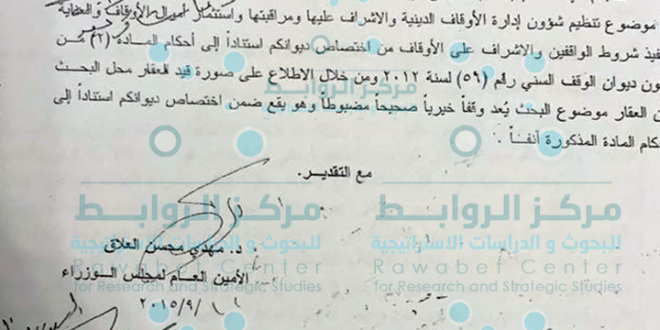 موضوع تنظيم شؤون إدارة الأوقاف الدينية والاشراف عليها ومراقبتها واستثمار اموال الأوقاف والعناية
فيذ شروط الواقفين والاشراف على الأوقاف من اختصاص ديوانكم استناداً إلى أحكام المادة (٢) من
ون ديوان الوقف السني رقم (٥٩) لسنة ٢٠١٢ ومن خلال الاطلاع على صورة قيد العقار محل البحث
ن العقار موضوع البحث يُعد وقفاً خيرياً صحيحاً مضبوطاً وهو يقع ضمن اختصاص ديوانكم استناداً إلى
حكام المادة المذكورة آنفاً .
مع التقدير.
د. مهدي محسن العلاق
الأمين العام لمجلس الوزراء
٢٠١٥/٩/
مركز الروابط
للبحوث و الدراسات الاستراتيجية
Rawabet Center
for Research and Strategic Studies
مركز الروابط
للبحوث و الدراسات الاستراتيجية
Rawabet Center
for Research and Strategic Studies
مركز الروابط
للبحوث و الدراسات الاستراتيجية
Rawabet Center
for Research and Strategic Studies